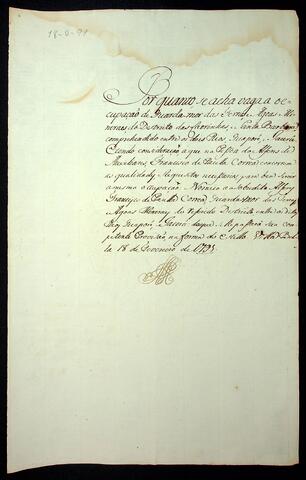 18-2-91
Por quanto se acha vaga a oc-
cupação de Guarda mor das Terras, Agoas Mi-
neraes do Destricto das Marinhas, Santa Barbara
comprehendido entre os dois Rios
tendo consideração a que na Pessoa do Alferes de
Auxiliares, Francisco de Paula Correa concorrem
as qualidades, requisitos necessarios para bem servir
a mesma occupação: Nomeio ao sobredito Alferes
Francisco de Paula Correa, Guarda mor das Terras,
Agoas Mineraes do referido Districto entre os dois
Rios daque Se passará sua com-
petente Provizão na forma do estillo. Villa
la 18 de Fevereiro de 1791